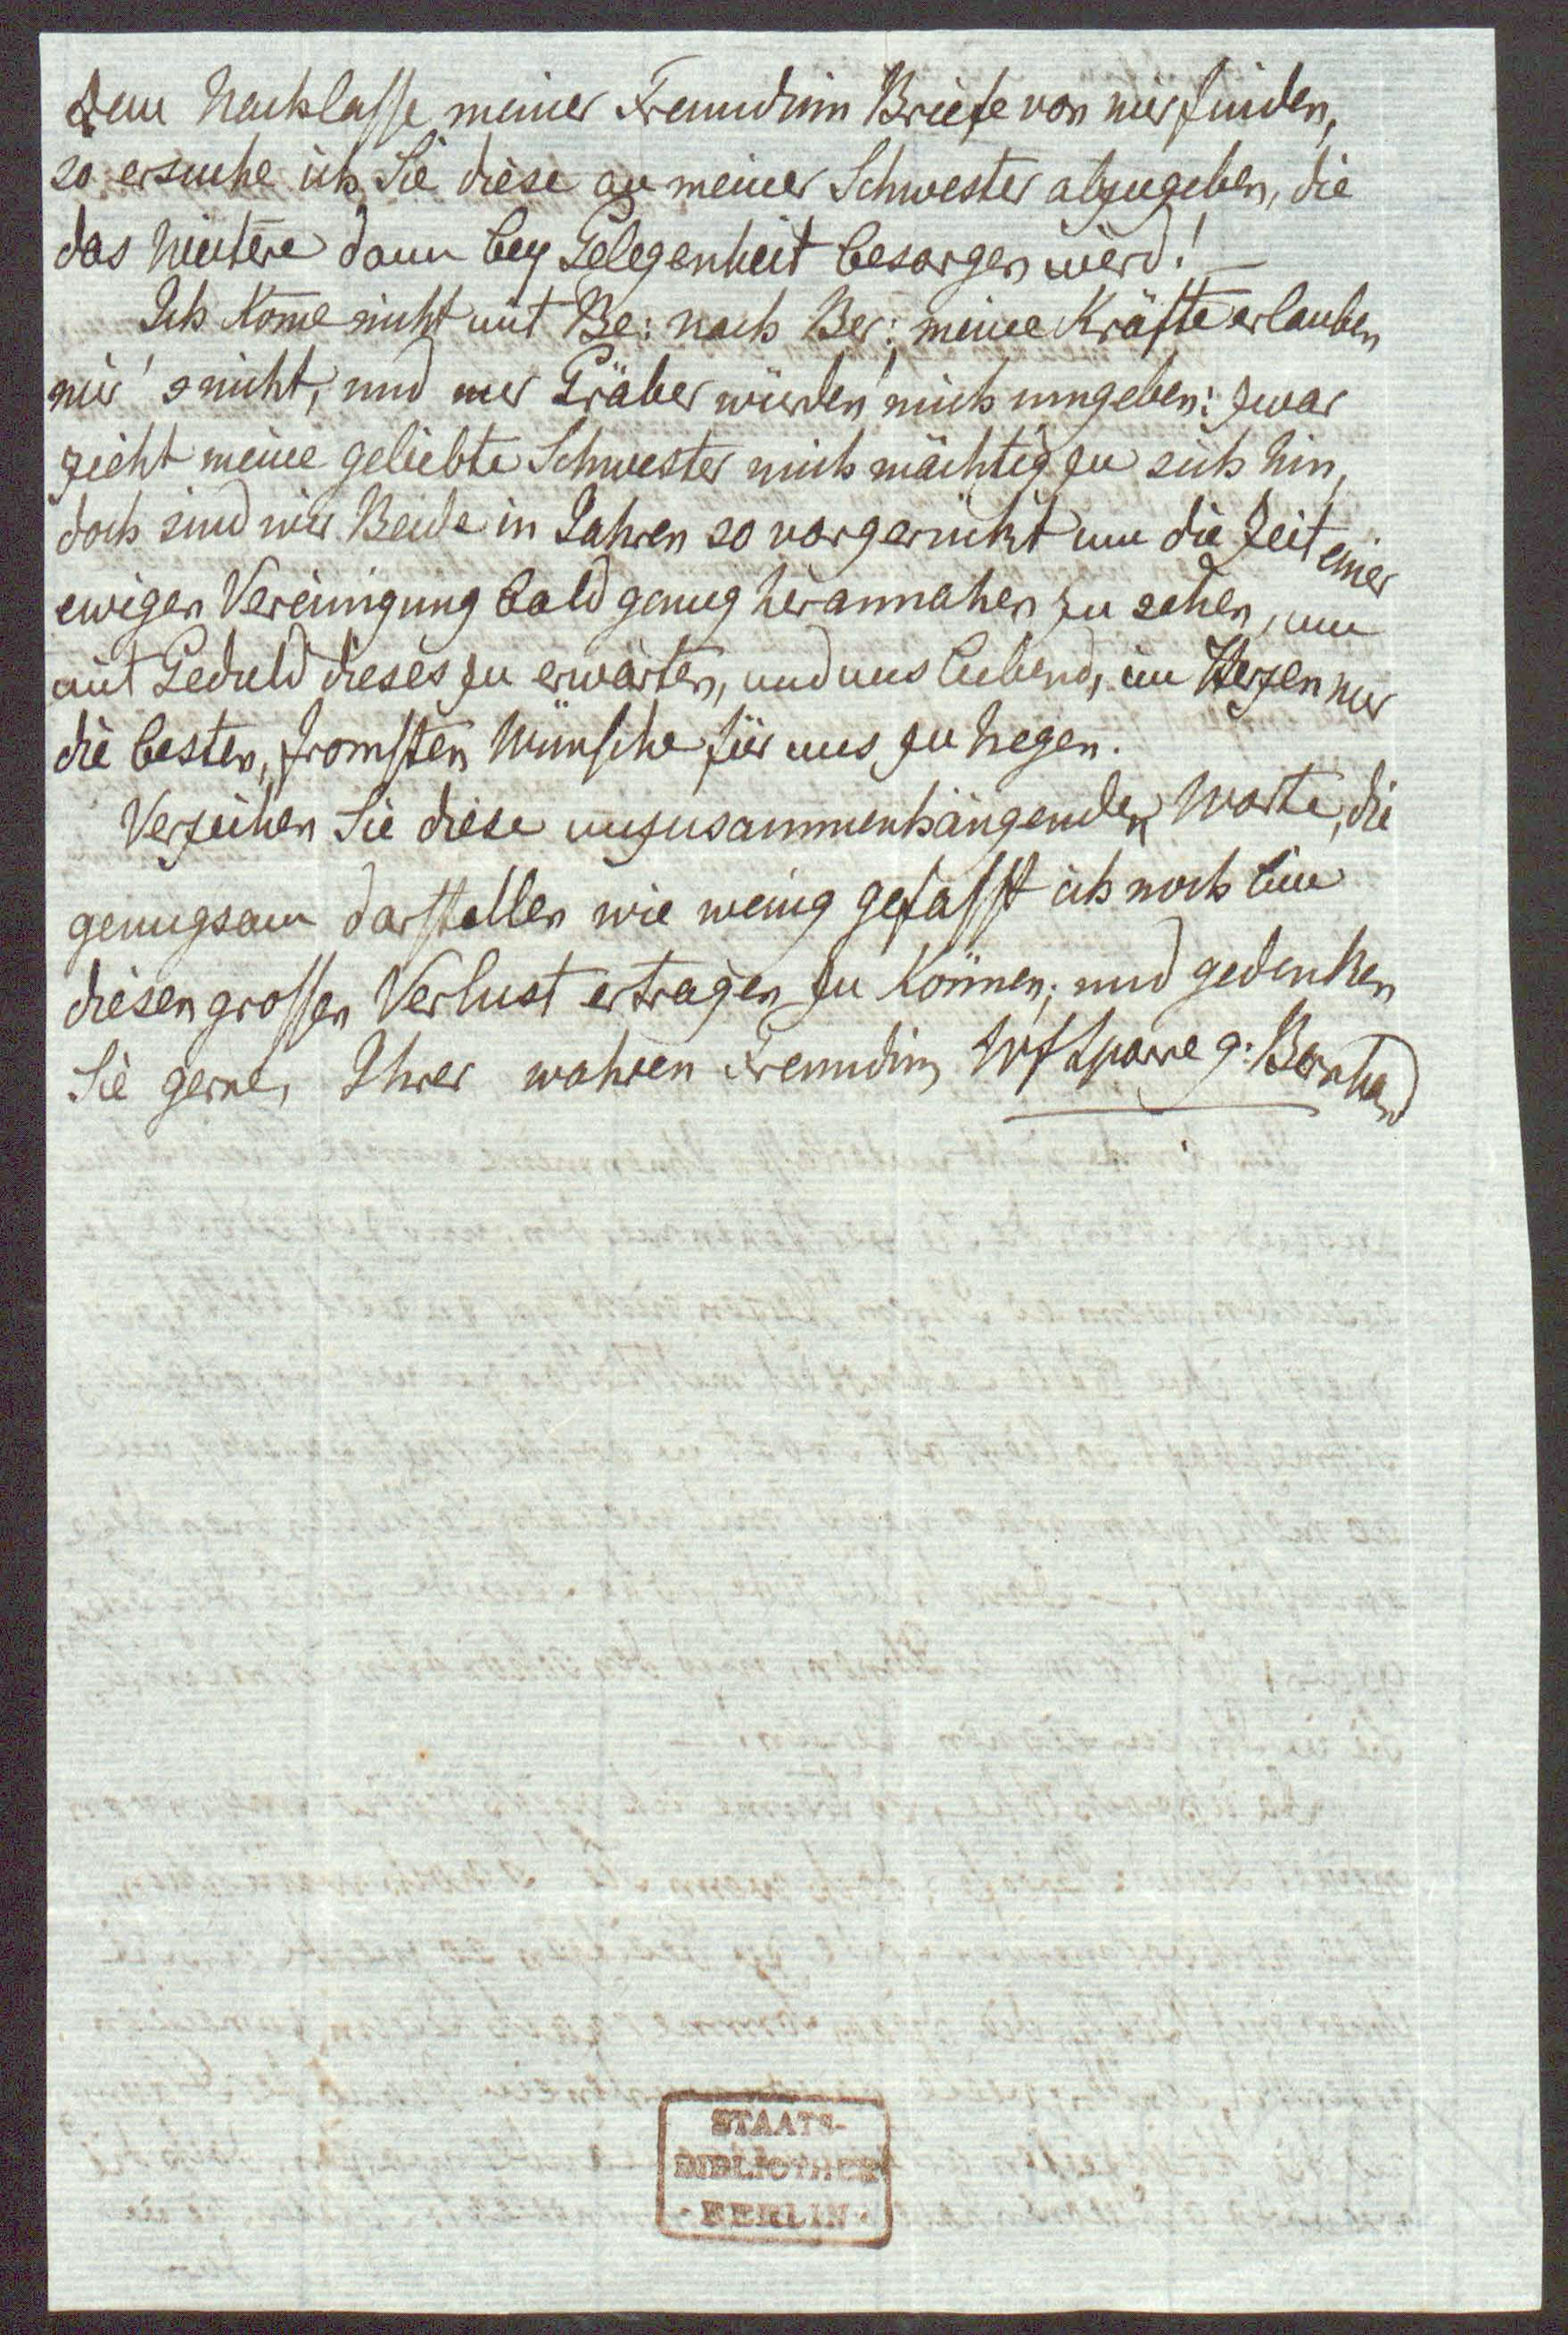 dem Nachlasse meiner Freundinn Briefe von mir finden,
so ersuche ich Sie diese an meiner Schwester abzugeben, die
das Weitere dann bey Gelegenheit besorgen wird! —
Ich kome nicht mit Be: nach Ber: meine Kräfte erlauben
mir's nicht, und nur Gräber würden mich umgeben: zwar
zieht meine geliebte Schwester mich mächtig zu sich hin,
doch sind wir Beide in Jahren so vorgerückt um die Zeit einer
ewigen Vereinigung bald genug herannahen zu sehen, um
mit Geduld dieses zu erwarten, und uns liebend, im Herzen nur
die besten, fromsten Wünsche für uns zu hegen.
Verzeihen Sie diese unzusammenhängenden Worte, die
genugsam darstellen wie wenig gefasst ich noch bin
diesen grossen Verlust ertragen zu können; und gedenken
Sie gerne, Ihrer wahren Freundinn Sparre g: Bernhard
STAATS-
BIBLIOTHEK
· BERLIN ·